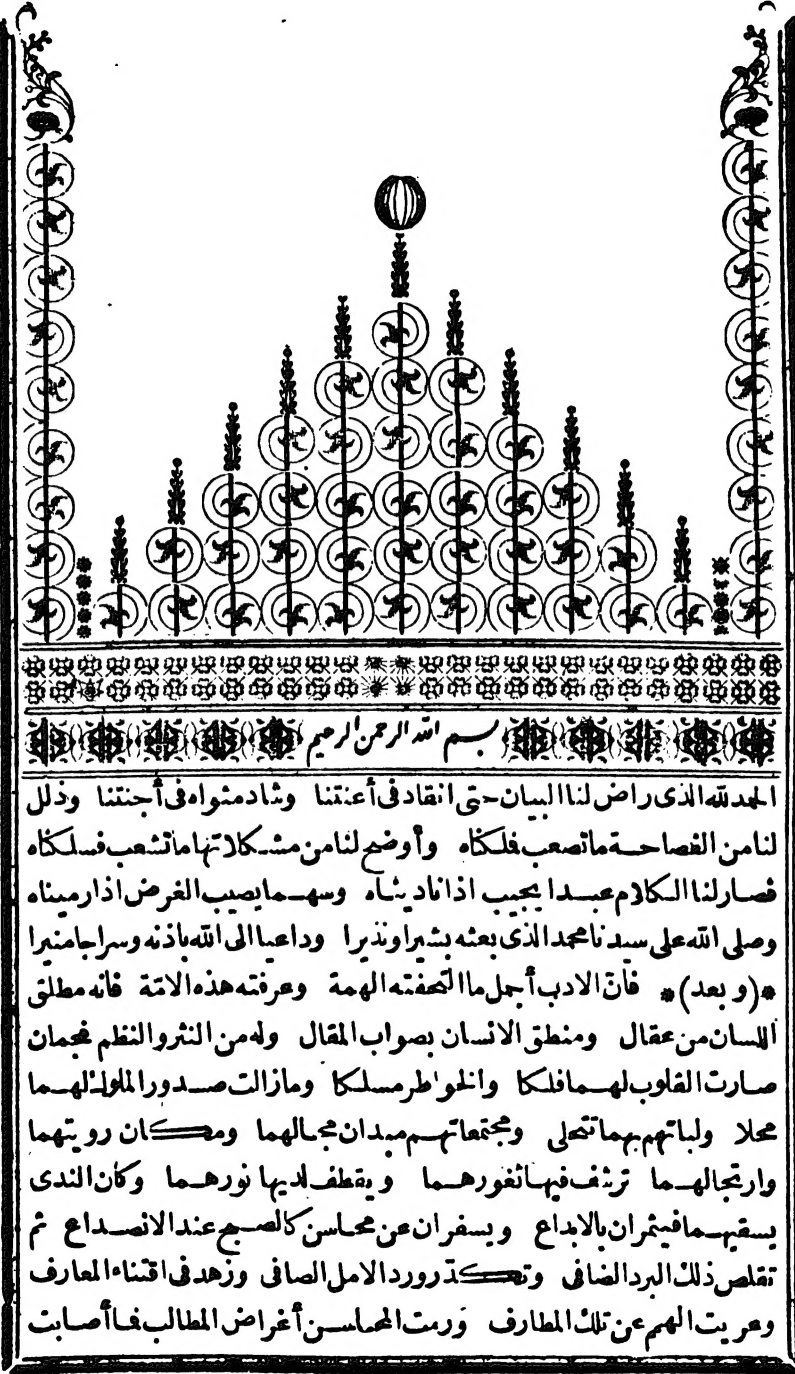 بسم الله الرحمن الرحيم
الحمد لله الذى راض لنا البيان حتى انقاد فى أعنتنا وشاد مثواه فى أجنتنا وذلل
لنا من الفصاحة ما تصعب فلكناه وأوضح لنا من مشكلاتها ما تشعب فسلكناه
فصار لنا الكلام عبدا يجيب اذا ناديناه وسهما يصيب الغرض اذا رميناه
وصلى الله على سيدنا محمد الذى بعثه بشيرا ونذيرا وداعيا الى الله باذنه وسراجا منيرا
*(وبعد)* فانّ الادب أجمل ما التحفته الهمة وعرفته هذه الامّة فانه مطلق
اللسان من عقال ومنطق الانسان بصواب المقال وله من النثر والنظم نجمان
صارت القلوب لهما فلكا والخواطر مسلكا وما زالت صدور الملوك لهما
محلا ولباتهم بهما تتحلى ومجتمعاتهم ميدان مجالهما ومكان رويتهما
وارتجالهما ترشف فيها ثغورهما ويقطف لديها نورهما وكان الندى
يسقيهما فيثمران بالابداع ويسفران عن محاسن كالصبح عند الانصداع ثم
تقلص ذلك البرد الضافى وتكدّر ورد الامل الصافى وزهد فى اقتناء المعارف
وعريت الهمم عن تلك المطارف ورمت المحاسن أغراض المطالب فما أصابت